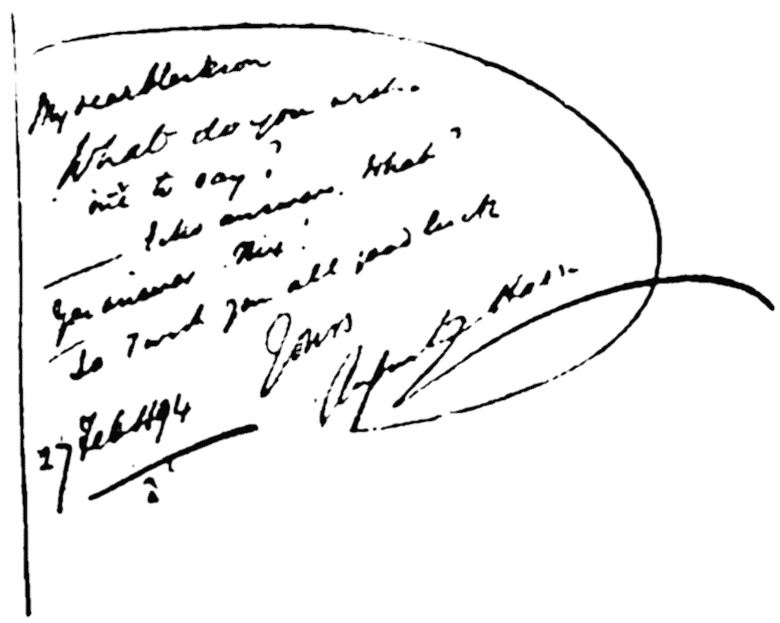 My dear Clarkson
What do you ask
me to say?
Echo answers What?
You answer Nix!
So I wish you all good luck
Yours
27 Feb 1894